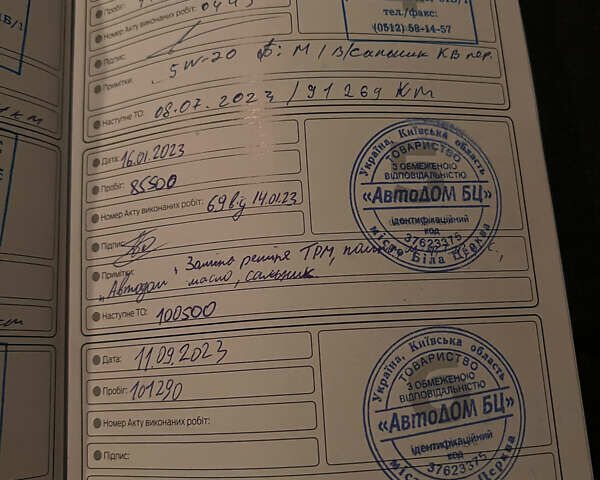 Пробіг:
Номер Акту виконаних робіт:
тел./факс:
(0512) 58-14-57
Підпис:
5W-20 М/В/сальник КВ пер.
Примітки:
Наступне ТО: 08.07.2023 / 91269 Km
Дата: 16.01.2023
Пробіг: 85500
Номер Акту виконаних робіт: 69 від 14.01.23
Підпис:
Примітки: Заміна ременя ТРМ,
"Автодом" масло, сальник
Наступне ТО: 100500
Україна, Київська область
ТОВАРИСТВО
З ОБМЕЖЕНОЮ
ВІДПОВІДАЛЬНІСТЮ
«АвтоДОМ БЦ»
ідентифікаційний
код
37623375
місто Біла Церква
Дата: 11.09.2023
Пробіг: 101290
Номер Акту виконаних робіт:
Підпис:
Україна, Київська область
ТОВАРИСТВО
З ОБМЕЖЕНОЮ
ВІДПОВІДАЛЬНІСТЮ
«АвтоДОМ БЦ»
ідентифікаційний
код
37623375